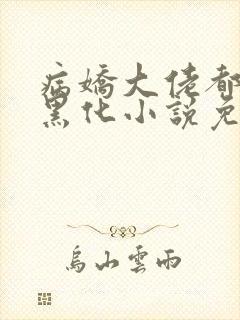 病嬌大佬都
黑化小說免
烏山雲雨